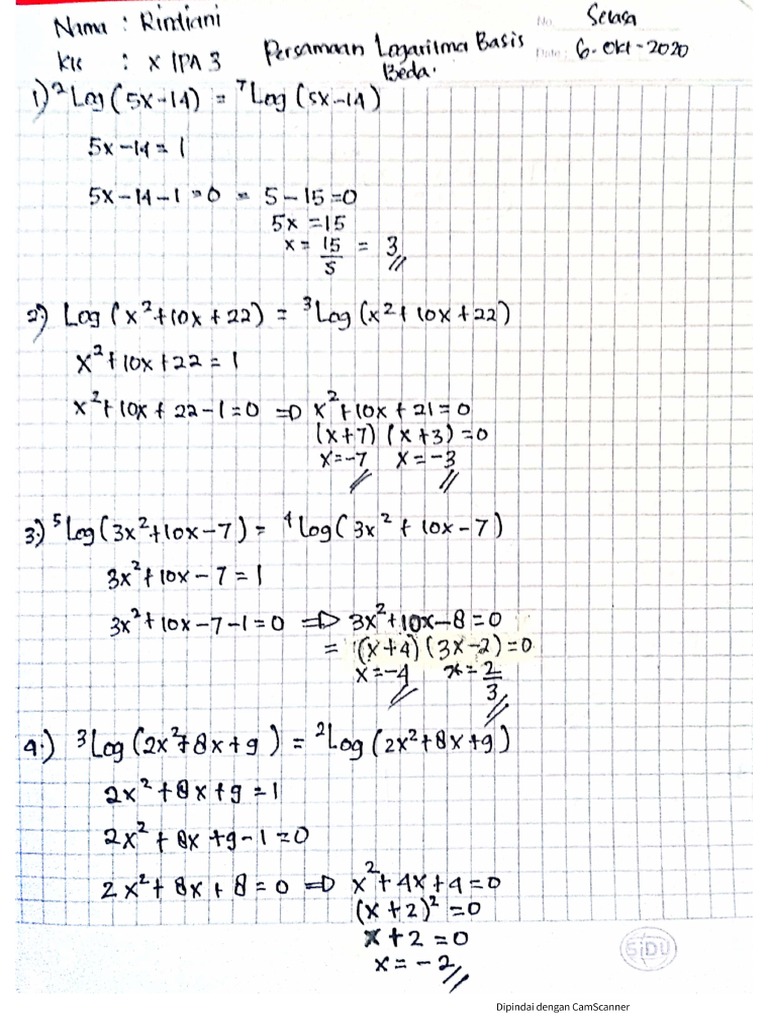 Nama : Rindiani
No. Selasa
Kls : X IPA 3
Persamaan Logaritma Basis
Date : 6-Okt-2020
Beda.
1) ²Log (5x-14) = ⁷Log (5x-14)
5x-14 = 1
5x-14-1 = 0 = 5-15=0
5x = 15
x = 15/5 = 3
2) Log (x²+10x+22) = ³Log (x²+10x+22)
x²+10x+22 = 1
x²+10x+22-1=0 ⇒ x²+10x+21=0
(x+7) (x+3) =0
x=-7 x=-3
3) ⁵Log (3x²+10x-7) = ⁴log (3x²+10x-7)
3x²+10x-7 = 1
3x²+10x-7-1=0 ⇒ 3x²+10x-8=0
= (x+4) (3x-2)=0
x=-4 x=2/3
4.) ³Log (2x²+8x+9) = ²Log (2x²+8x+9)
2x²+8x+9=1
2x²+8x+9-1=0
2x²+8x+8=0 ⇒ x²+4x+4=0
(x+2)²=0
x+2=0
x=-2
SiDU
Dipindai dengan CamScanner